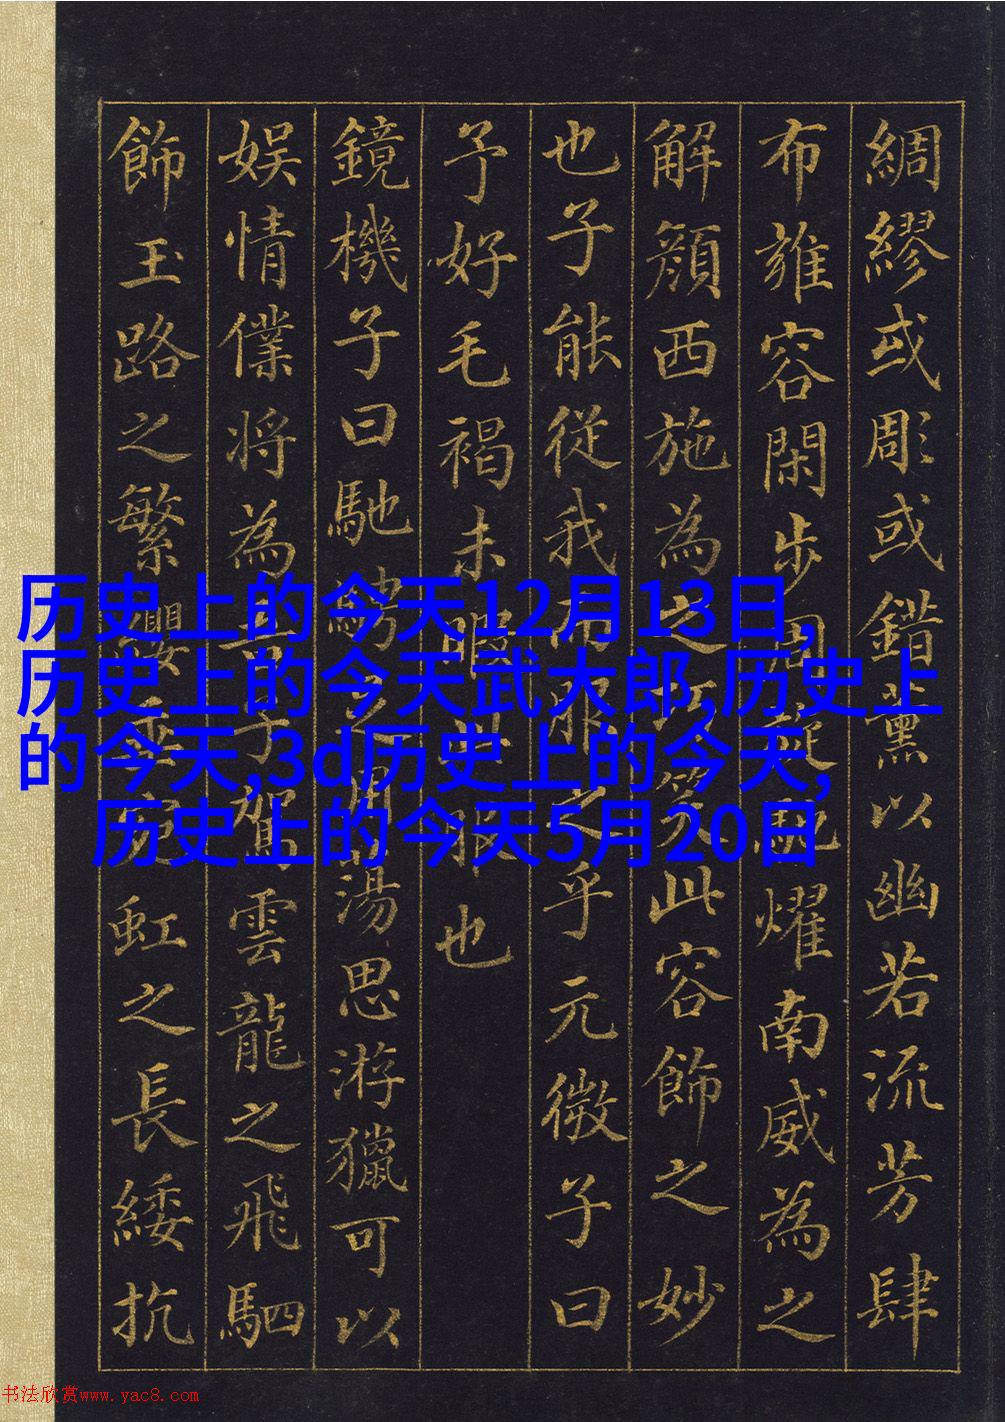 綢繆或彫或錯薰以幽若流芳肆
布雍容閑步周旋馳燿南威為之
解顏西施為之巧笑此容飾之妙
也子能從我而服之乎元微子曰
予好毛褐未暇此服也
鏡機子曰馳騁足用蕩思游獵可以
娛情僕將為吾子駕雲龍之飛駟
飾玉路之繁纓垂宛虹之長綏抗
历史上的今天12月13日,
历史上的今天武大郎,历史上
的今天,3d历史上的今天,
历史上的今天5月20日
书法欣赏www.yac8.com